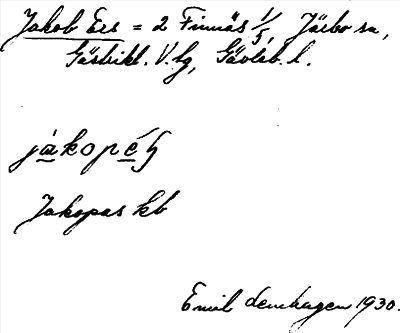 Jakob Ers = 2 Finnäs 1/5, Järbo sn,
Gästrikl. V. hg, Gävleb. l.
jákopés
Jakopas kb
Emil Lenhagen 1930.